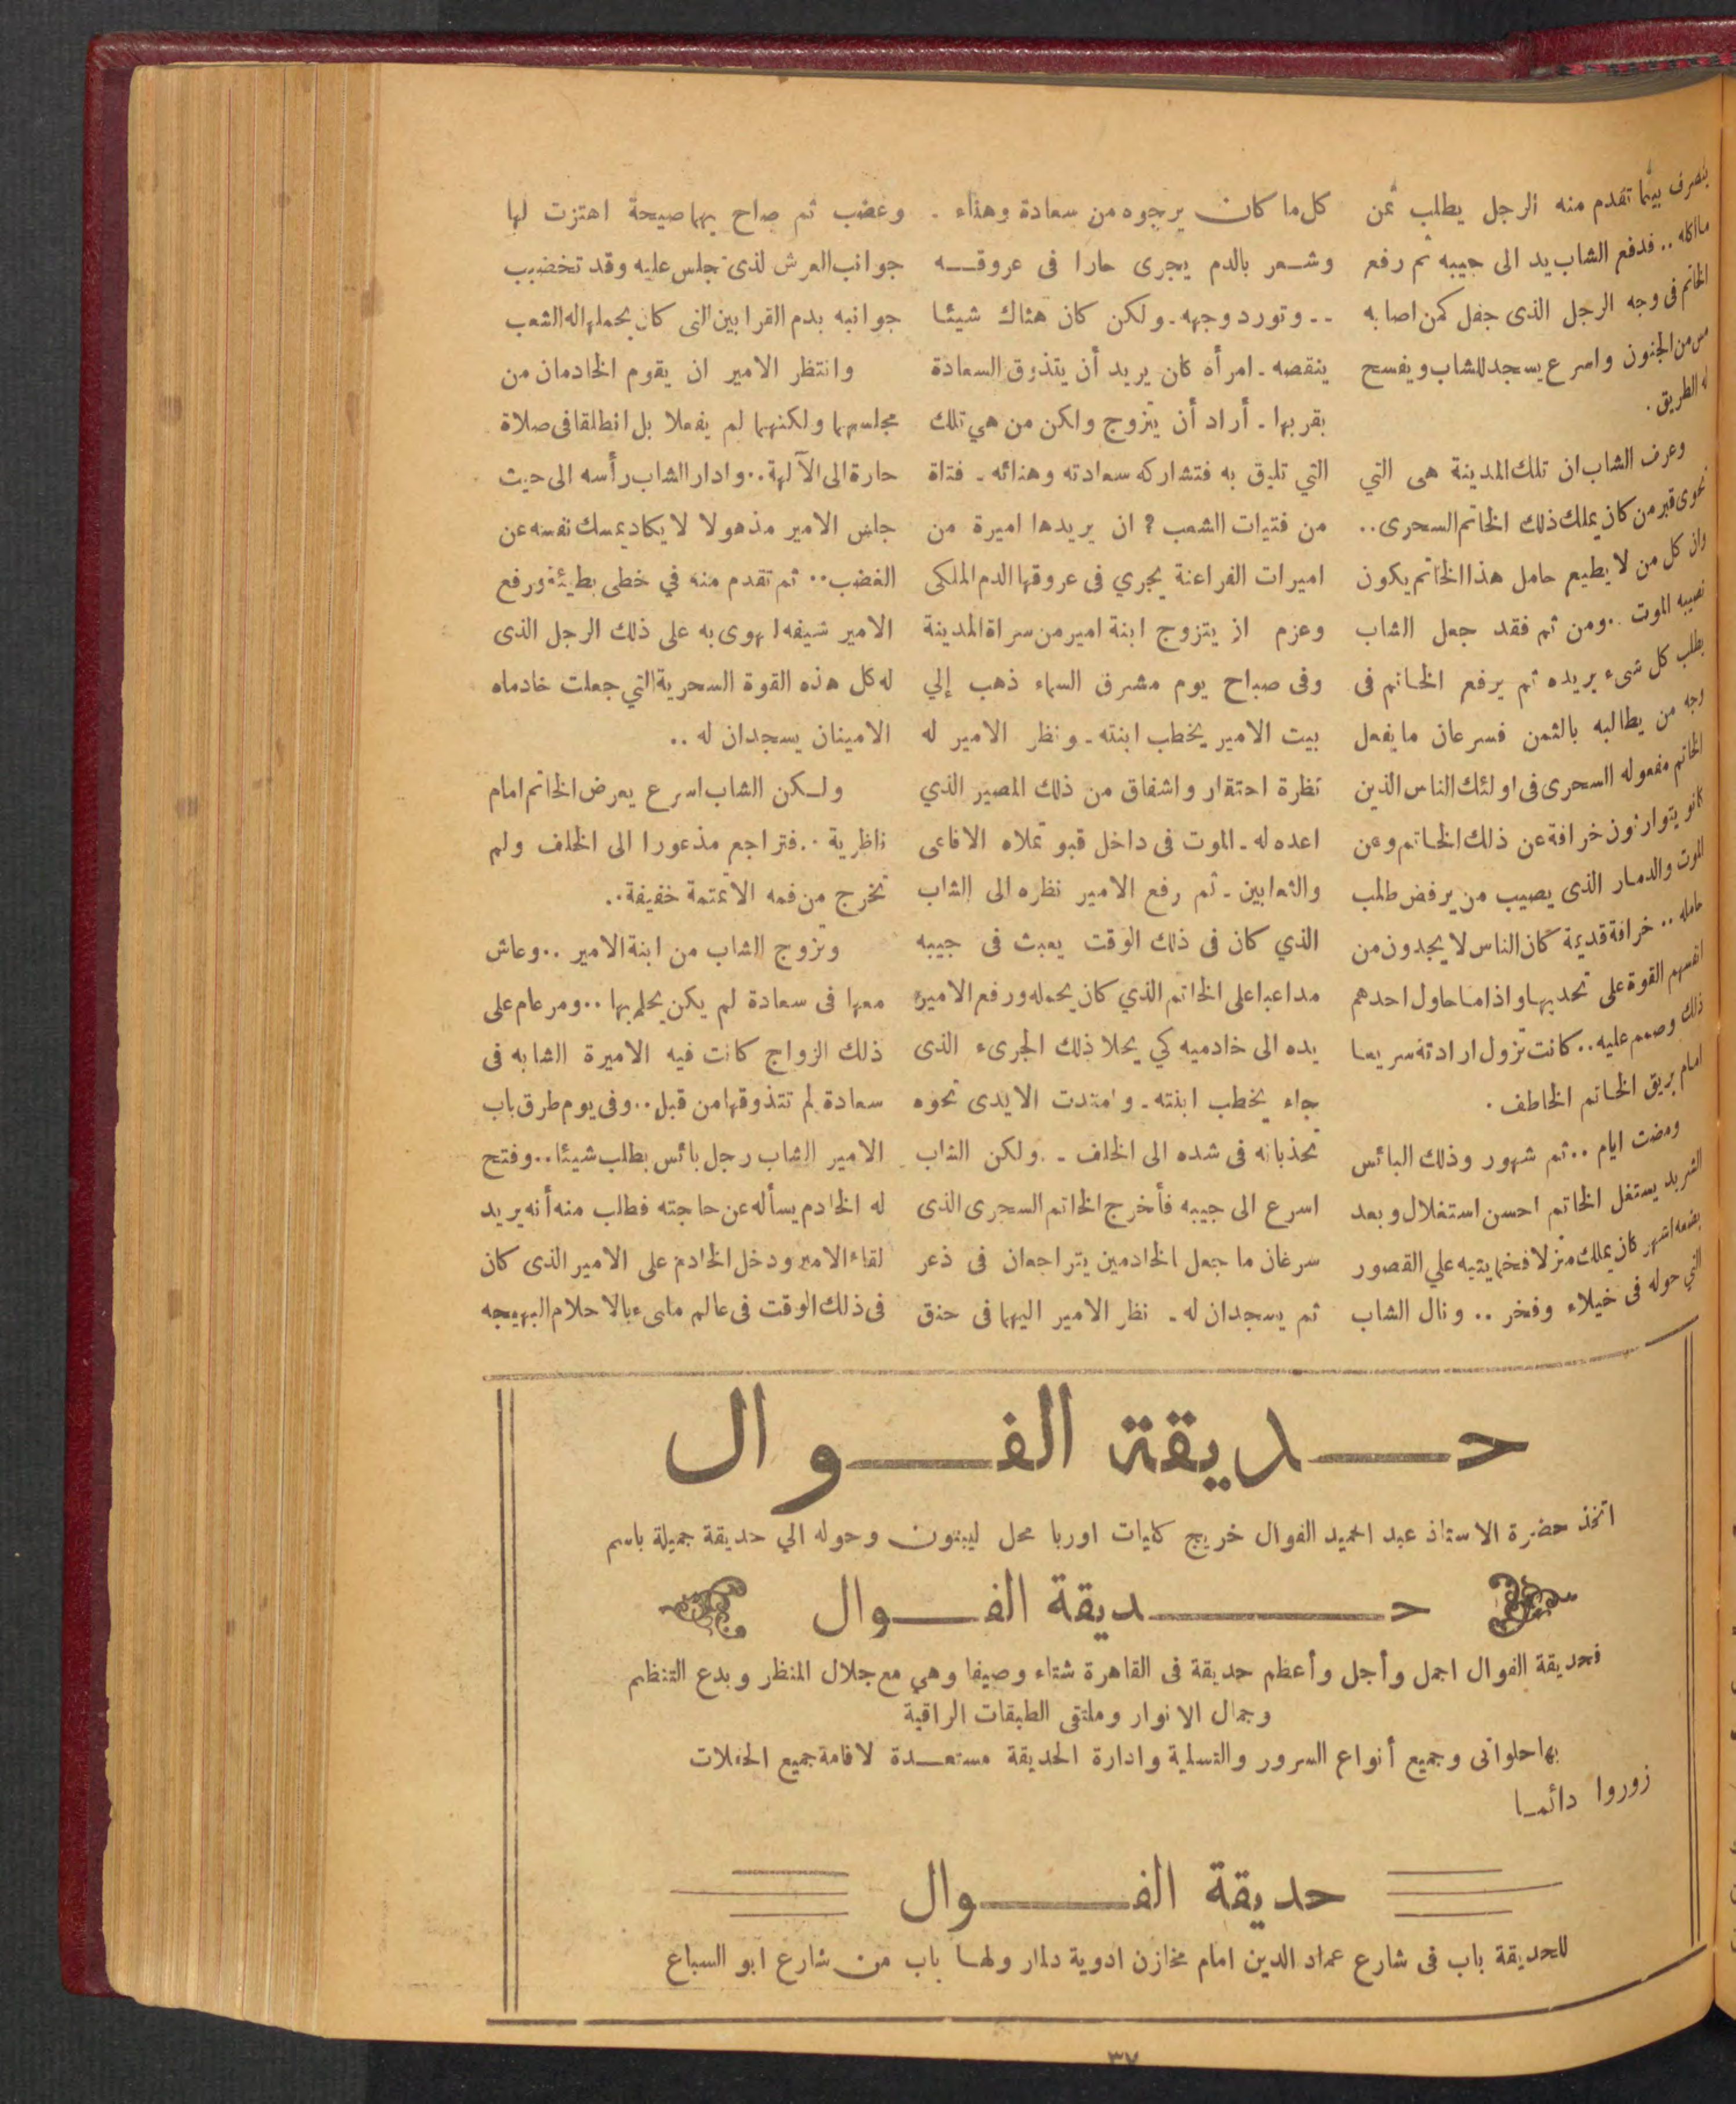 ينصرف بينما تقدم منه الرجل يطلب ثمن
ماأكله .. فدفع الشاب يد الى جيبه ثم رفع
الخاتم فى وجه الرجل الذى جفل كمن اصابه
مس من الجنون واسرع يسجد للشاب ويفسح
له الطريق .
وعرف الشاب ان تلك المدينة هى التي
تحوى قبر من كان يملك ذلك الخاتم السحرى ..
وان كل من لا يطيع حامل هذا الخاتم يكون
نصيبه الموت .. ومن ثم فقد جعل الشاب
يطلب كل شىء يريده ثم يرفع الخاتم فى
وجه من يطالبه بالثمن فسرعان ما يفعل
الخاتم مفعوله السحرى فى اولئك الناس الذين
كانو يتوارثون خرافة عن ذلك الخاتم وعن
الموت والدمار الذى يصيب من يرفض طلب
حامله .. خرافة قديمة كان الناس لا يجدون من
انفسهم القوة على تحديها واذا ما حاول احدهم
ذلك وصمم عليه .. كانت تزول ارادته سريعا
امام بريق الخاتم الخاطف .
ومضت ايام .. ثم شهور وذلك البائس
الشريد يستغل الخاتم احسن استغلال وبعد
بضعه اشهر كان يملك منزلا فخما يتيه علي القصور
التي حوله فى خيلاء وفخر .. ونال الشاب
كل ما كان يرجوه من سعادة وهناء .
وشعر بالدم يجرى حارا فى عروقه
.. وتورد وجهه ـ ولكن كان هناك شيئا
ينقصه ـ امرأه كان يريد أن يتذوق السعادة
بقربها ـ أراد أن يتزوج ولكن من هي تلك
التي تليق به فتشاركه سعادته وهنائه ـ فتاة
من فتيات الشعب ؟ ان يريدها اميرة من
اميرات الفراعنة يجري فى عروقها الدم الملكى
وعزم ان يتزوج ابنة امير من سراة المدينة
وفى صباح يوم مشرق السماء ذهب إلي
بيت الامير يخطب ابنته ـ ونظر الامير له
نظرة احتقار واشفاق من ذلك المصير الذي
اعده له ـ الموت فى داخل قبو تملاه الافاعى
والثعابين ـ ثم رفع الامير نظره الى الشاب
الذي كان فى ذلك الوقت يعبث فى جيبه
مداعبا على الخاتم الذي كان يحمله ورفع الامير
يده الى خادميه كي يحلا ذلك الجرىء الذى
جاء يخطب ابنته ـ وامتدت الايدى نحوه
تجذبانه فى شده الى الخلف ـ ولكن الشاب
اسرع الى جيبه فأخرج الخاتم السحرى الذى
سرغان ما جعل الخادمين يتراجعان فى ذعر
ثم يسجدان له ـ نظر الامير اليهما فى حنق
وغضب ثم صاح بهما صيحة اهتزت لها
جوانب العرش لذى جلس عليه وقد تخضبب
جوانبه بدم القرابين التى كان يحملها له الشعب
وانتظر الامير ان يقوم الخادمان من
مجلسهما ولكنهما لم يفعلا بل انطلقا فى صلاة
حارة الى الآلهة .. وادار الشاب رأسه الى حيث
جلس الامير مذهولا لا يكاد يمسك نفسه عن
الغضب .. ثم تقدم منه في خطى بطيئة ورفع
الامير شيفه ليهوى به على ذلك الرجل الذى
له كل هذه القوة السحرية التي جعلت خادماه
الامينان يسجدان له ..
ولكن الشاب اسرع يعرض الخاتم امام
ناظرية .. فتراجع مذعورا الى الخلف ولم
تخرج من فمه الا تمتمة خفيفة ..
وتزوج الشاب من ابنة الامير .. وعاش
معها فى سعادة لم يكن يحلم بها .. ومر عام على
ذلك الزواج كانت فيه الاميرة الشابه فى
سعادة لم تتذوقها من قبل .. وفى يوم طرق باب
الامير الشاب رجل بائس يطلب شيئا .. وفتح
له الخادم يسأله عن حاجته فطلب منه أنه يريد
لقاء الامير ودخل الخادم على الامير الذى كان
فى ذلك الوقت فى عالم ملىء بالاحلام البهيجه
حديقة الفوال
اتخذ حضرة الاستاذ عبد الحميد الفوال خريج كليات اوربا محل ليبتون وحوله الي حديقة جميلة باسم
حديقة الفوال
فحديقة الفوال اجمل وأجل وأعظم حديقة فى القاهرة شتاء وصيفا وهي مع جلال المنظر وبدع التنظيم
وجمال الانوار وملتقى الطبقات الراقية
بها حلوانى وجميع أنواع السرور والتسلية وادارة الحديقة مستعدة لاقامة جميع الحفلات
زوروا دائما
حديقة الفوال
للحديقة باب فى شارع عماد الدين امام مخازن ادوية دلمار ولها باب من شارع ابو السباع
٣٧